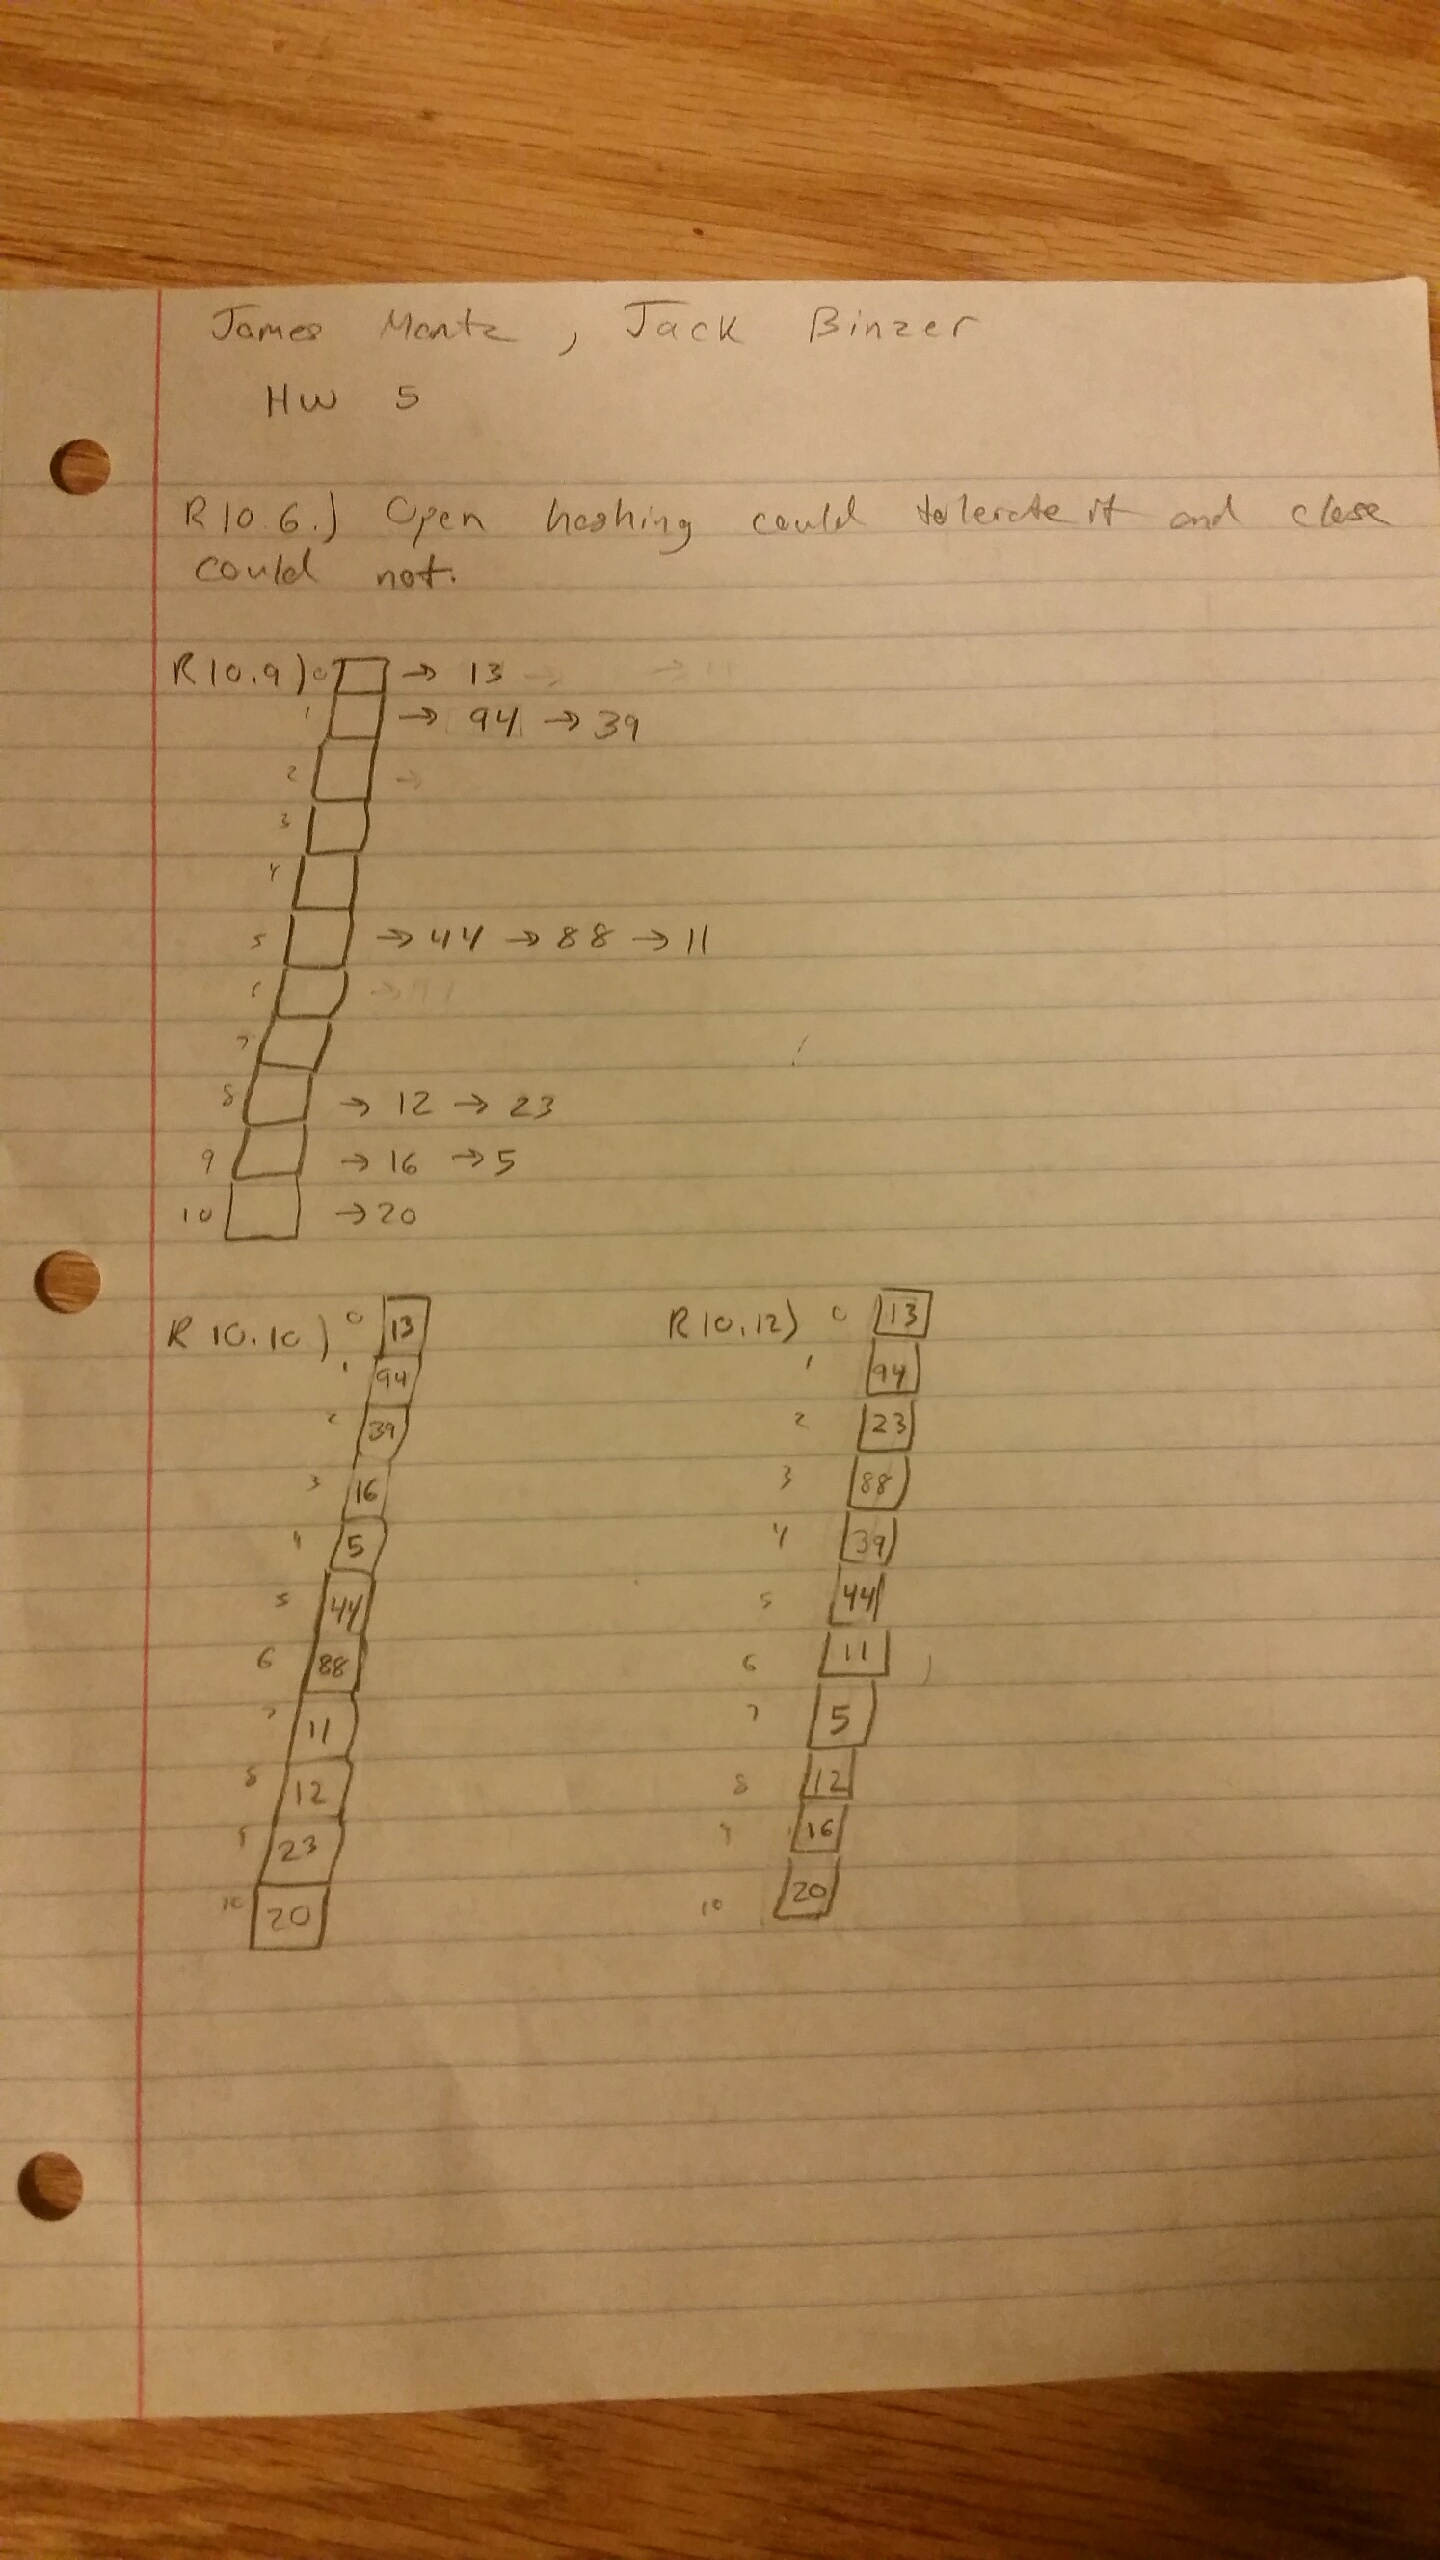 James Mantz, Jack Binzer
HW 5
R10.6.) Open hashing could tolerate it and close
could not.
R10.9) 0 → 13
1 → 94 → 39
2 →
3
4
5 → 44 → 88 → 11
6
7
8 → 12 → 23
9 → 16 → 5
10 → 20
R10.10) 0 13
1 94
2 39
3 16
4 5
5 44
6 88
7 11
8 12
9 23
10 20
R10.12) 0 13
1 94
2 23
3 88
4 39
5 44
6 11
7 5
8 12
9 16
10 20